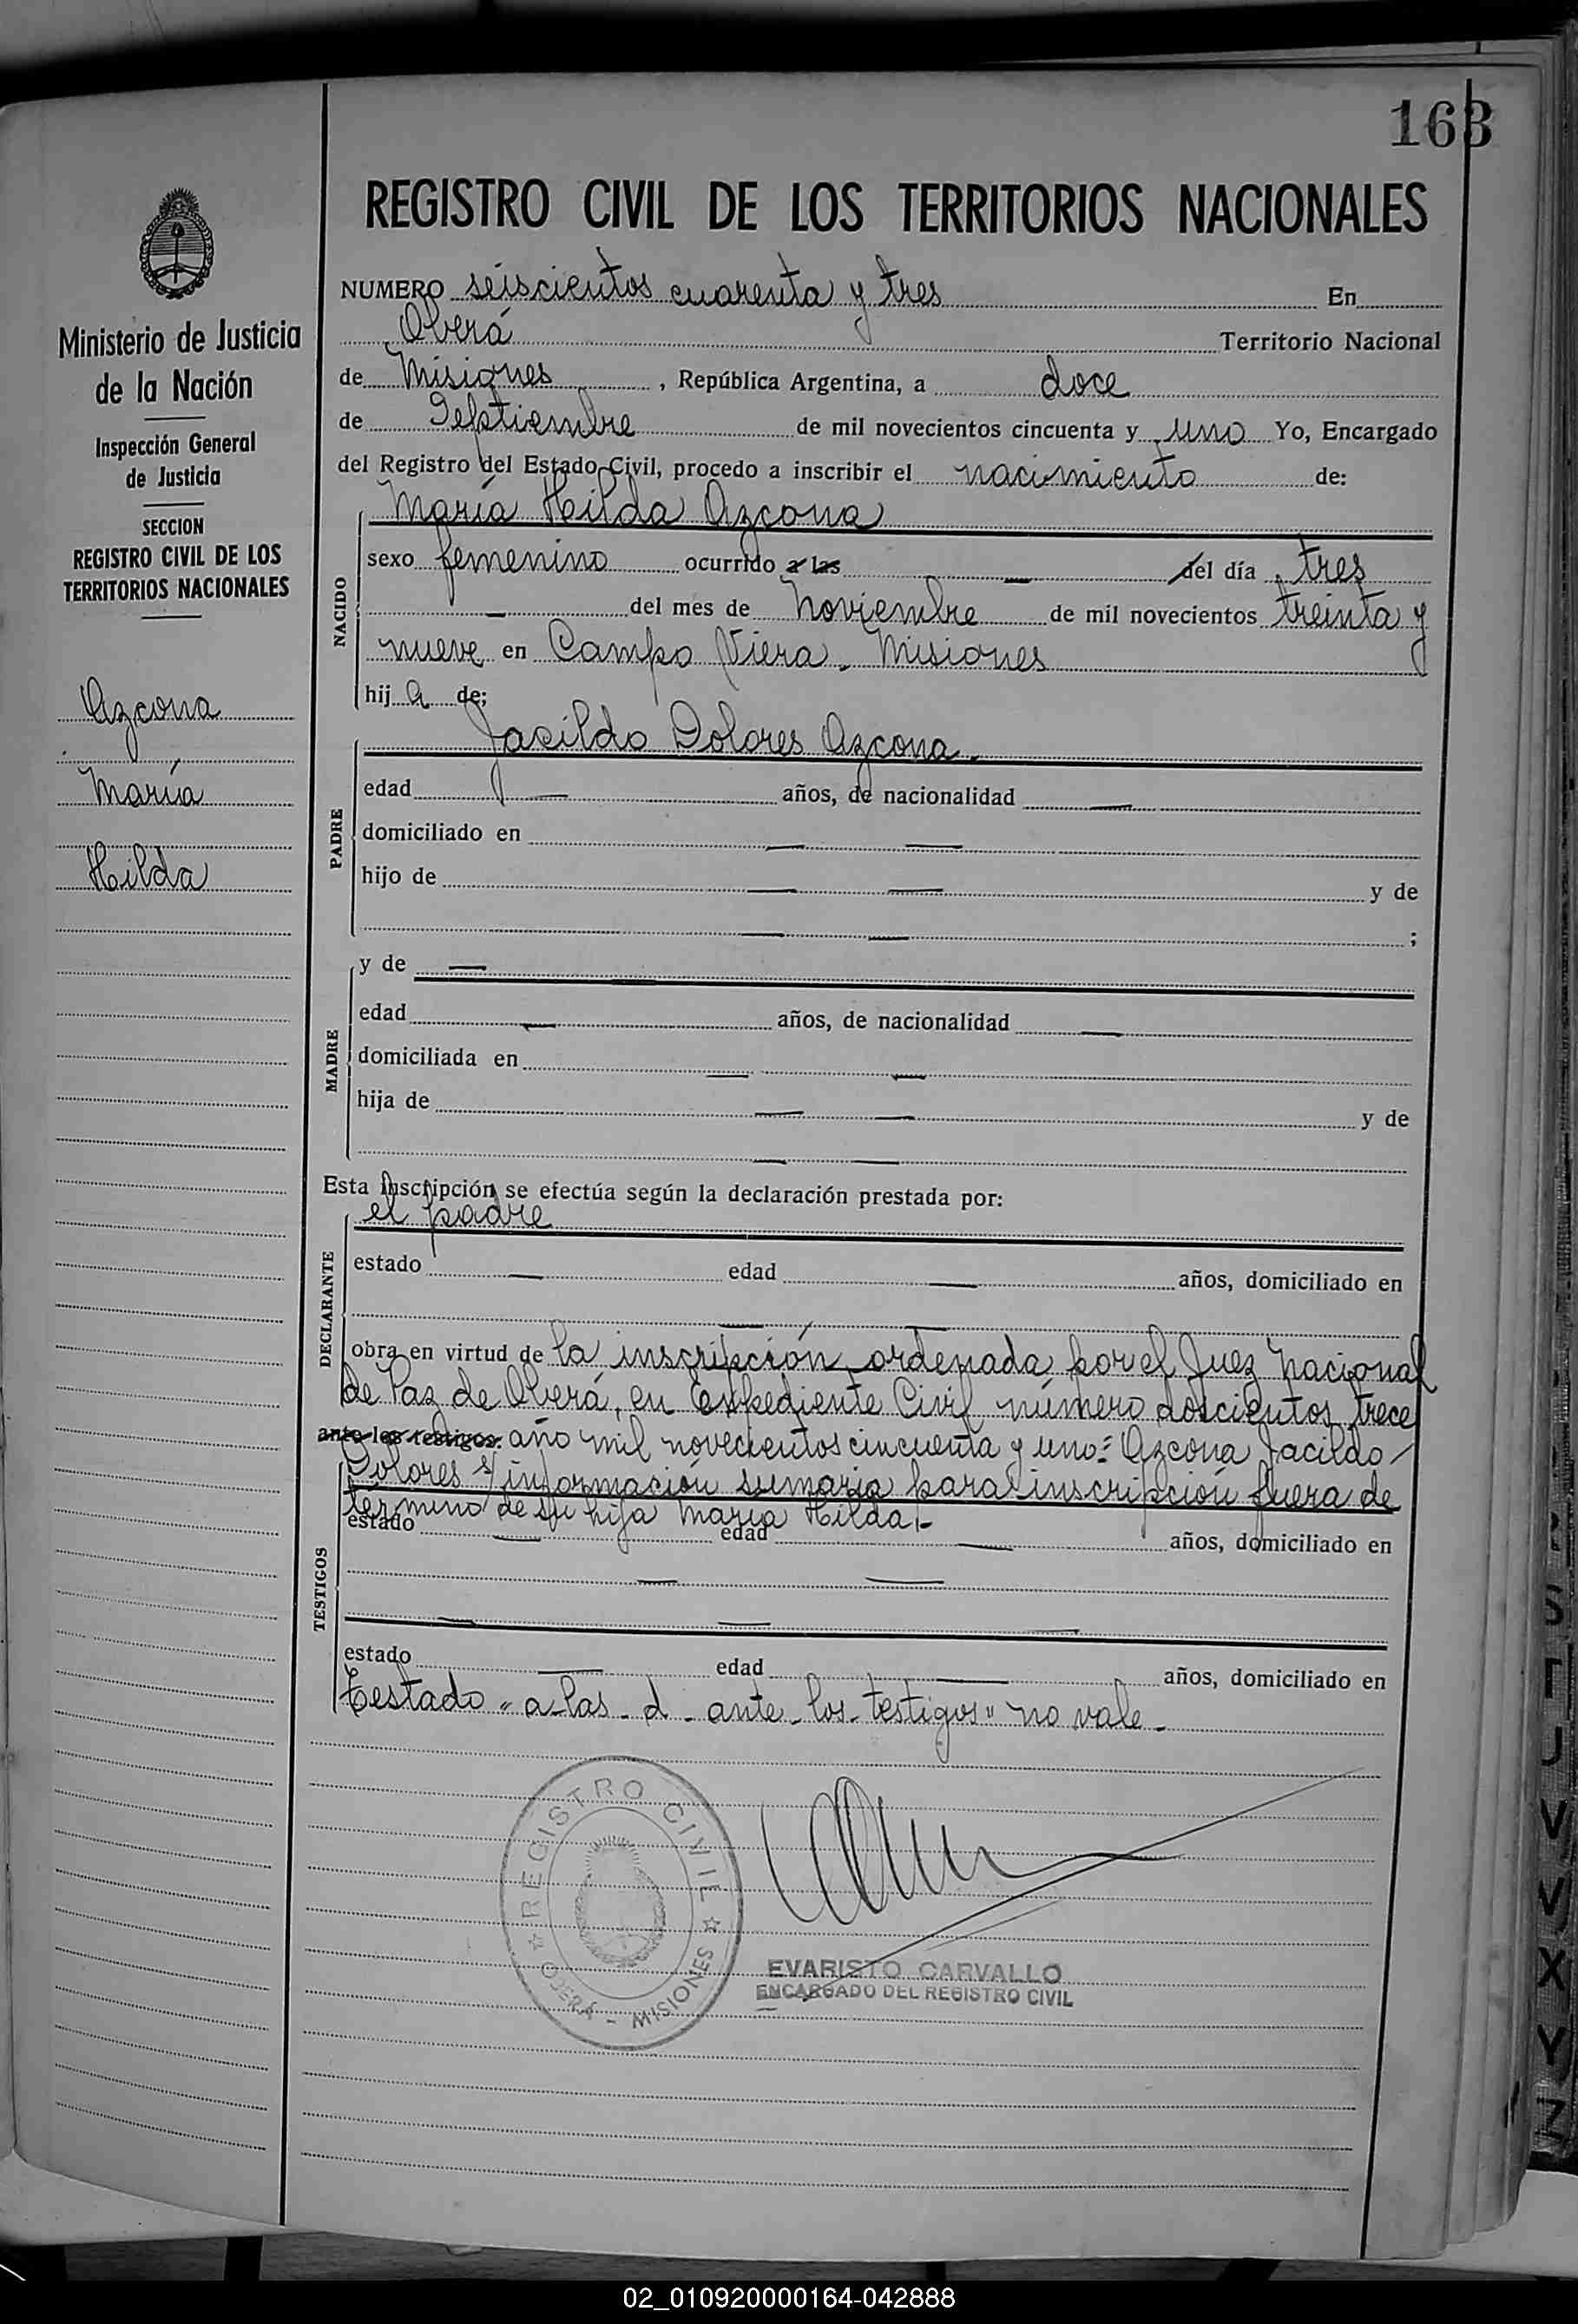 163
REGISTRO CIVIL DE LOS TERRITORIOS NACIONALES
Ministerio de Justicia
de la Nación
Inspección General
de Justicia
SECCION
REGISTRO CIVIL DE LOS
TERRITORIOS NACIONALES
Azcona
María
Hilda
NUMERO seiscientos cuarenta y tres En
Oberá Territorio Nacional
de Misiones, República Argentina, a doce
de Septiembre de mil novecientos cincuenta y uno Yo, Encargado
del Registro del Estado Civil, procedo a inscribir el nacimiento de:
María Hilda Azcona
NACIDO
sexo femenino ocurrido a las — del día tres
— del mes de Noviembre de mil novecientos treinta y
nueve en Campo Viera - Misiones
hij a de;
Jacildo Dolores Azcona.
PADRE
edad — años, de nacionalidad —
domiciliado en — —
hijo de — — y de
— — ;
y de —
MADRE
edad — años, de nacionalidad —
domiciliada en — —
hija de — — y de
— —
Esta inscripción se efectúa según la declaración prestada por:
el padre
DECLARANTE
estado — edad — años, domiciliado en
— —
obra en virtud de la inscripción ordenada por el Juez Nacional
de Paz de Oberá, en Expediente Civil número doscientos trece
ante los testigos: año mil novecientos cincuenta y uno: Azcona Jacildo
Dolores s/ información sumaria para inscripción fuera de
término de su hija María Hilda.-
TESTIGOS
estado — edad — años, domiciliado en
— —
— — —
estado — edad — años, domiciliado en
Testado "a-las - d - ante - los - testigos" no vale -
REGISTRO CIVIL
OBERÁ - MISIONES
EVARISTO CARVALLO
ENCARGADO DEL REGISTRO CIVIL
S
T
U
V
X
Y
Z
02_010920000164-042888